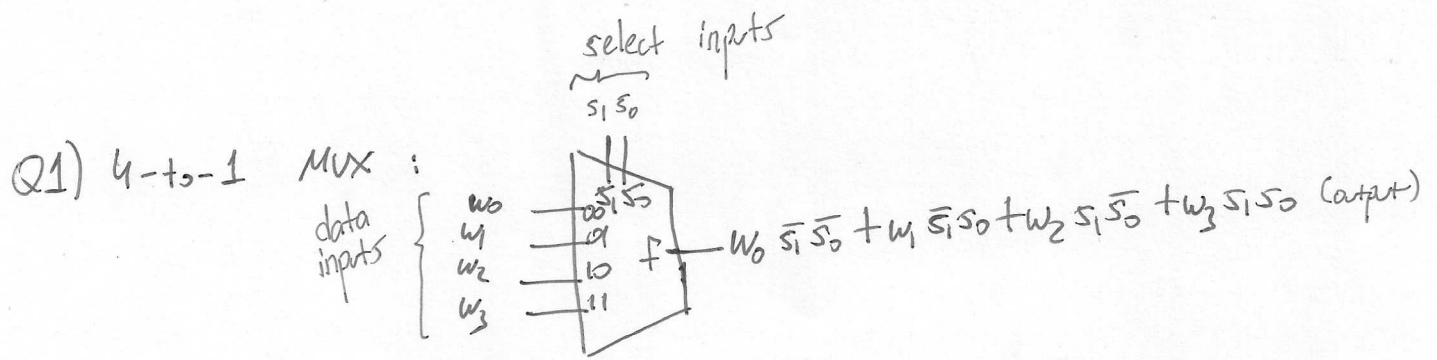 select inputs
s₁ s₀
Q1) 4-to-1 MUX :
data inputs
w₀
w₁
w₂
w₃
s₁ s₀
00
01
10
11
f
w₀ s̅₁ s̅₀ + w₁ s̅₁ s₀ + w₂ s₁ s̅₀ + w₃ s₁ s₀ (output)